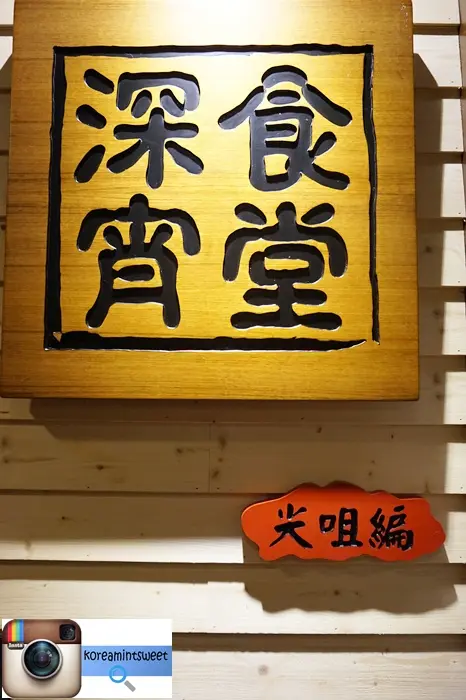 深宵食堂
尖咀編
Insta
koreamintsweet